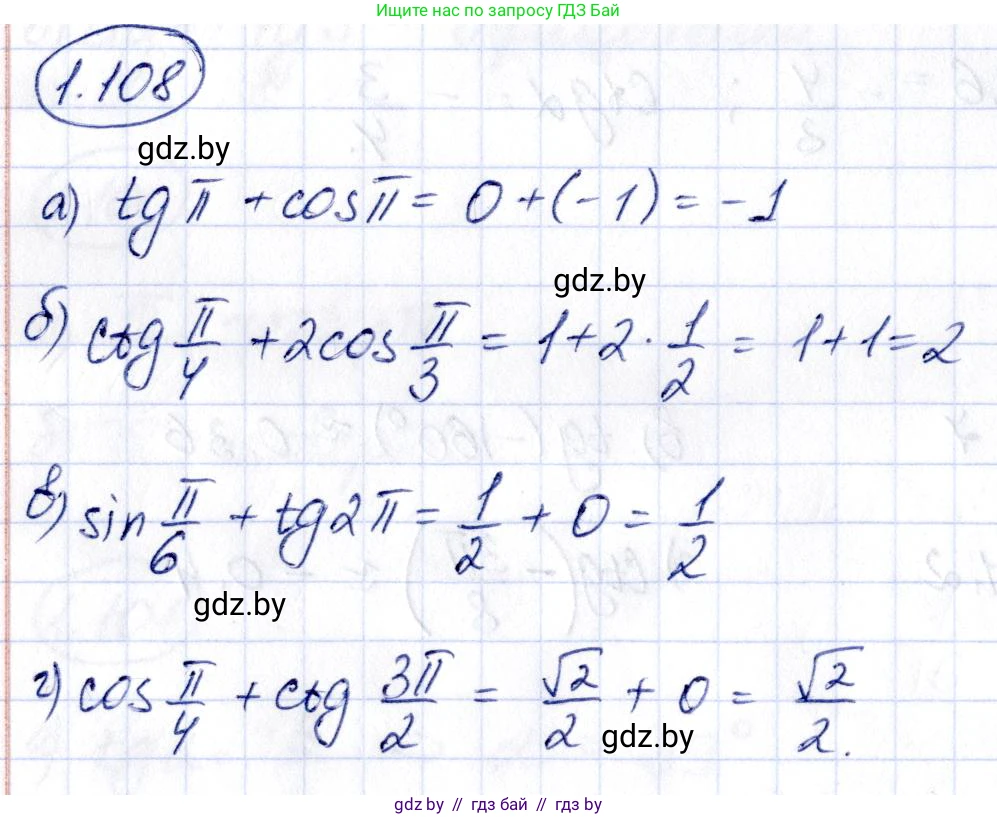 Ищите нас по запросу ГДЗ Бай
1.108
gdz.by
а) tg π + cos π = 0 + (-1) = -1
gdz.by
б) ctg π/4 + 2cos π/3 = 1 + 2 · 1/2 = 1 + 1 = 2
в) sin π/6 + tg 2π = 1/2 + 0 = 1/2
gdz.by
г) cos π/4 + ctg 3π/2 = √2/2 + 0 = √2/2.
gdz.by
gdz by // гдз бай // гдз by